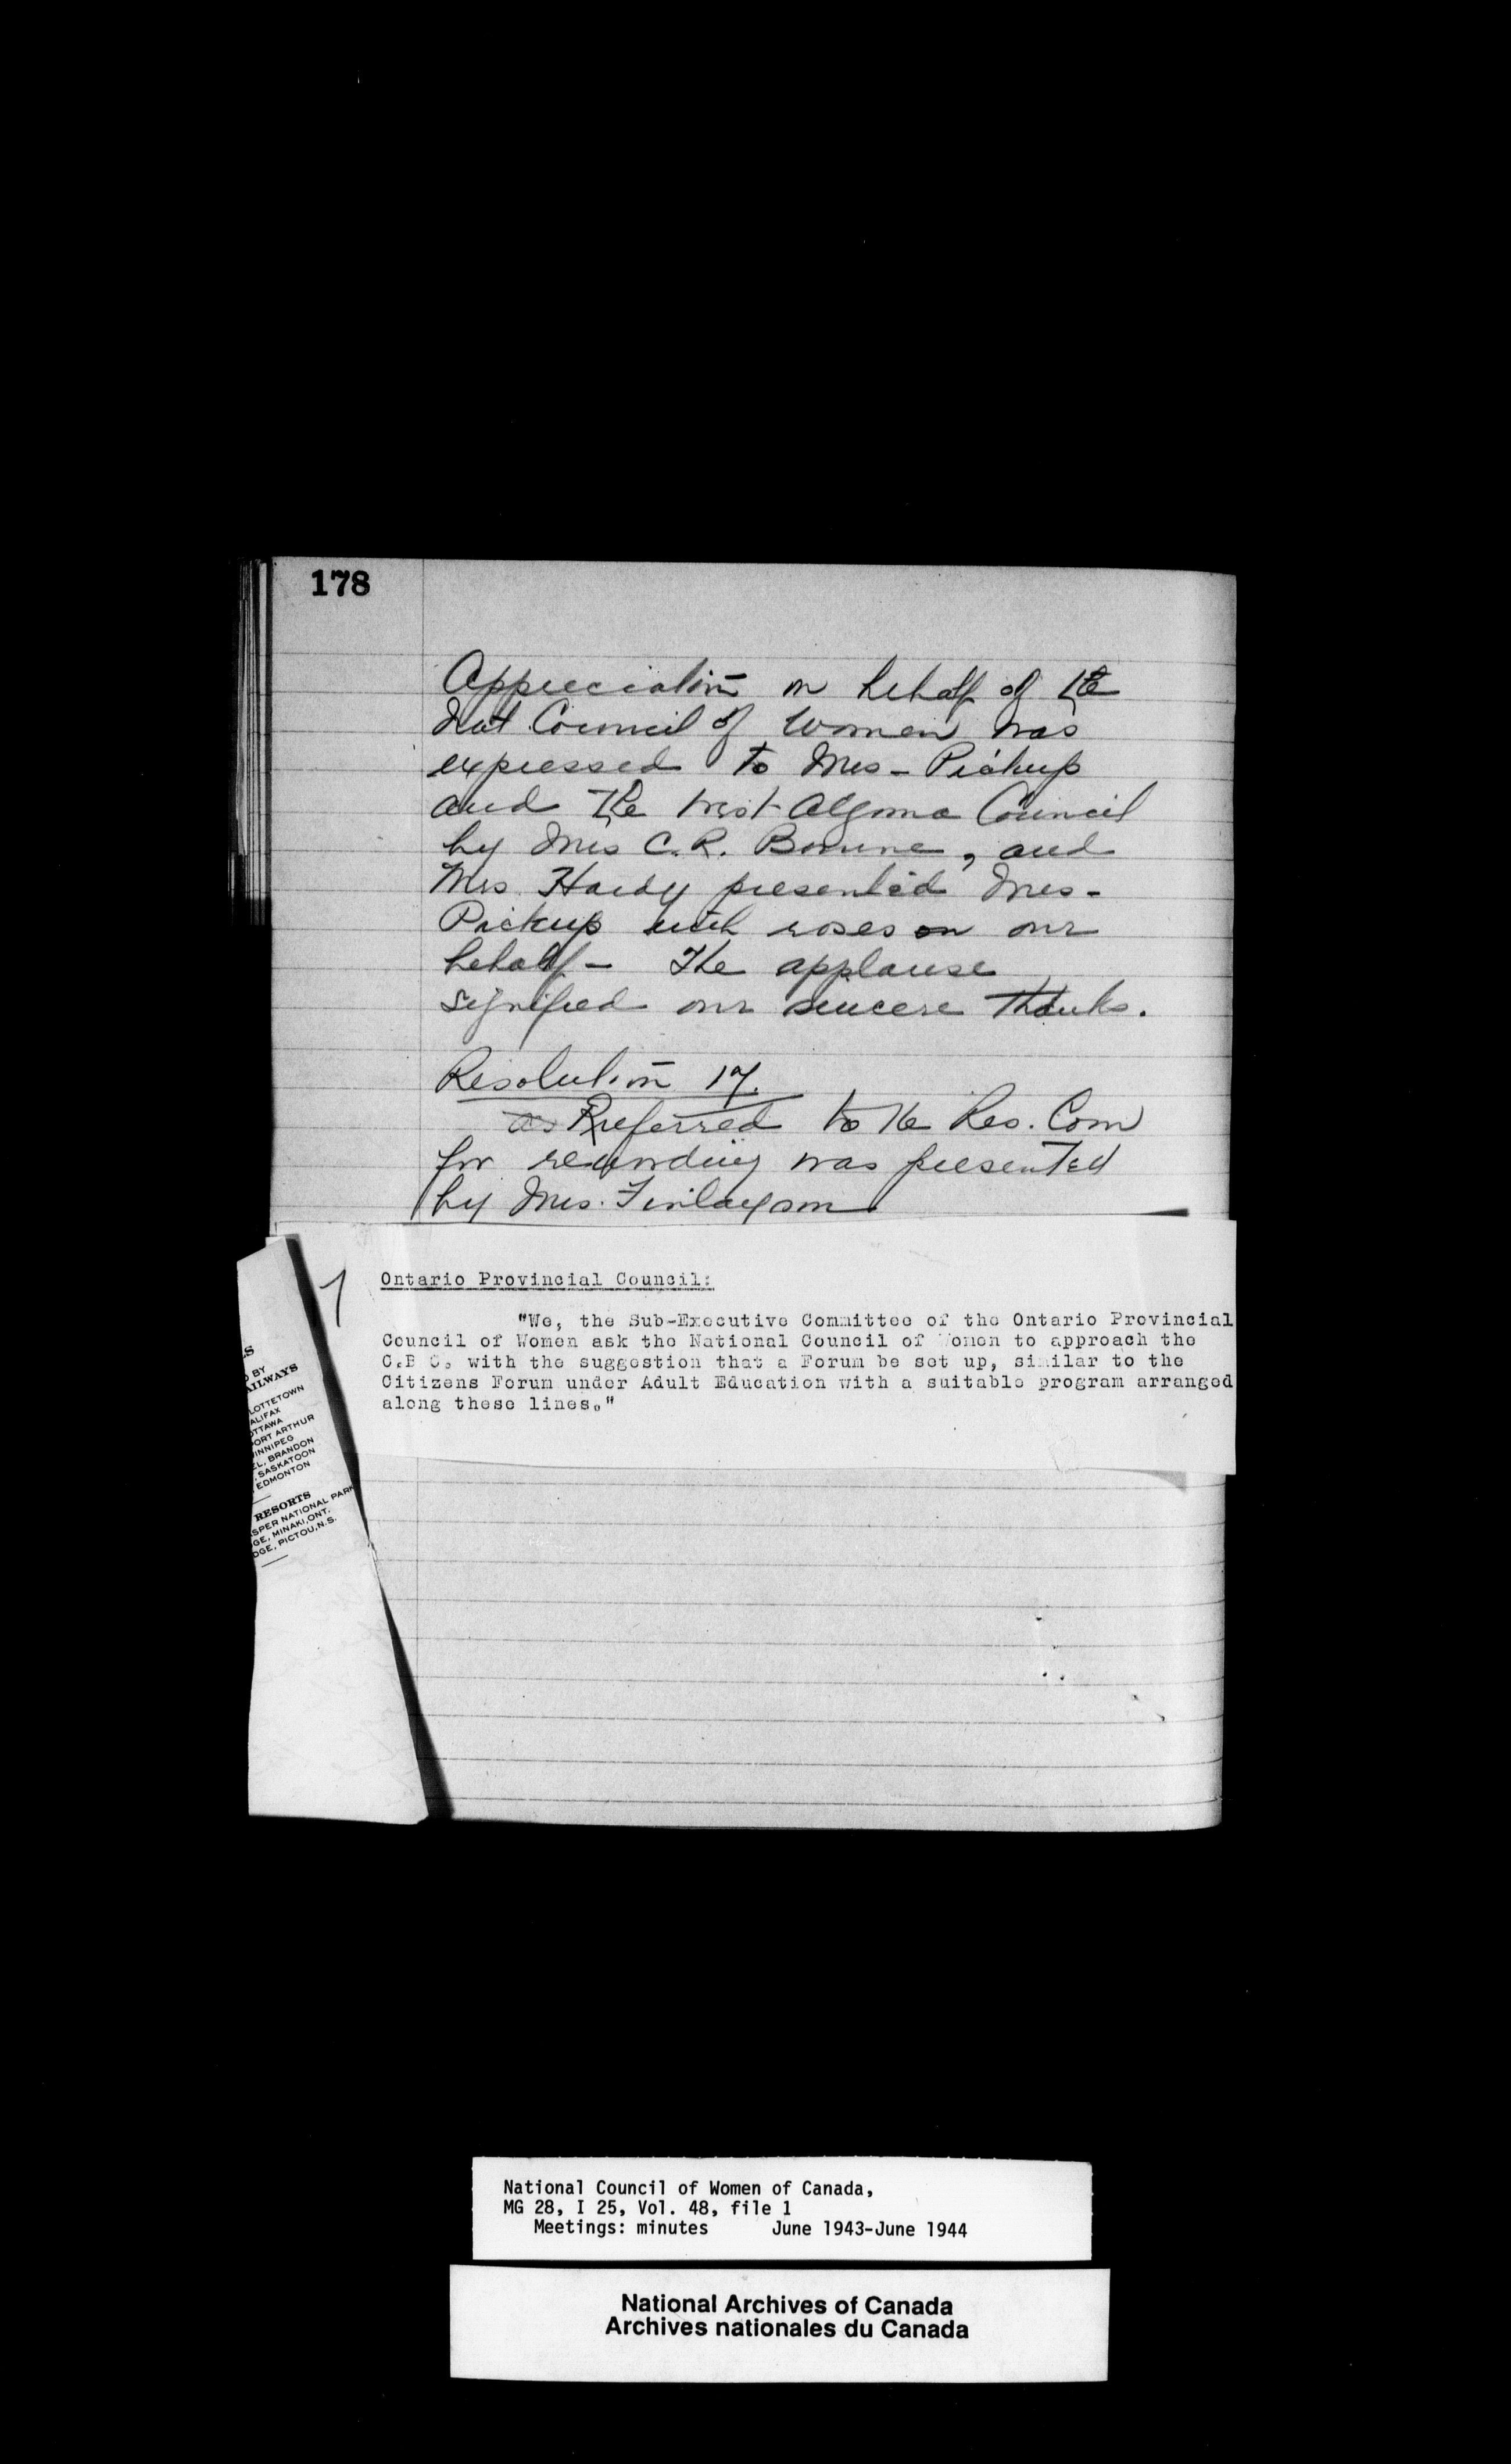 178
Appreciation on behalf of the
Nat. Council of Women was
expressed to Mrs - Pickup
and the West Algoma Council
by Mrs C.R. and
Mrs. Hardy presented Mrs -
Pickup with roses on our
behalf - The applause
signified our sincere thanks.
Resolution 17.
as Referred to the Res. Com
for rewording was presented
by Mrs. Finlayson
Ontario Provincial Council:
"We, the Sub-Executive Committee of the Ontario Provincial
Council of Women ask the National Council of Women to approach the
C.B C. with the suggestion that a Forum be set up, similar to the
Citizens Forum under Adult Education with a suitable program arranged
along these lines."
LS
D BY
AILWAYS
LOTTETOWN
ALIFAX
OTTAWA
ORT ARTHUR
INNIPEG
EL, BRANDON
, SASKATOON
EDMONTON
RESORTS
SPER NATIONAL PARK
GE, MINAKI, ONT.
DGE, PICTOU, N.S.
National Council of Women of Canada,
MG 28, I 25, Vol. 48, file 1
Meetings: minutes June 1943-June 1944
National Archives of Canada
Archives nationales du Canada